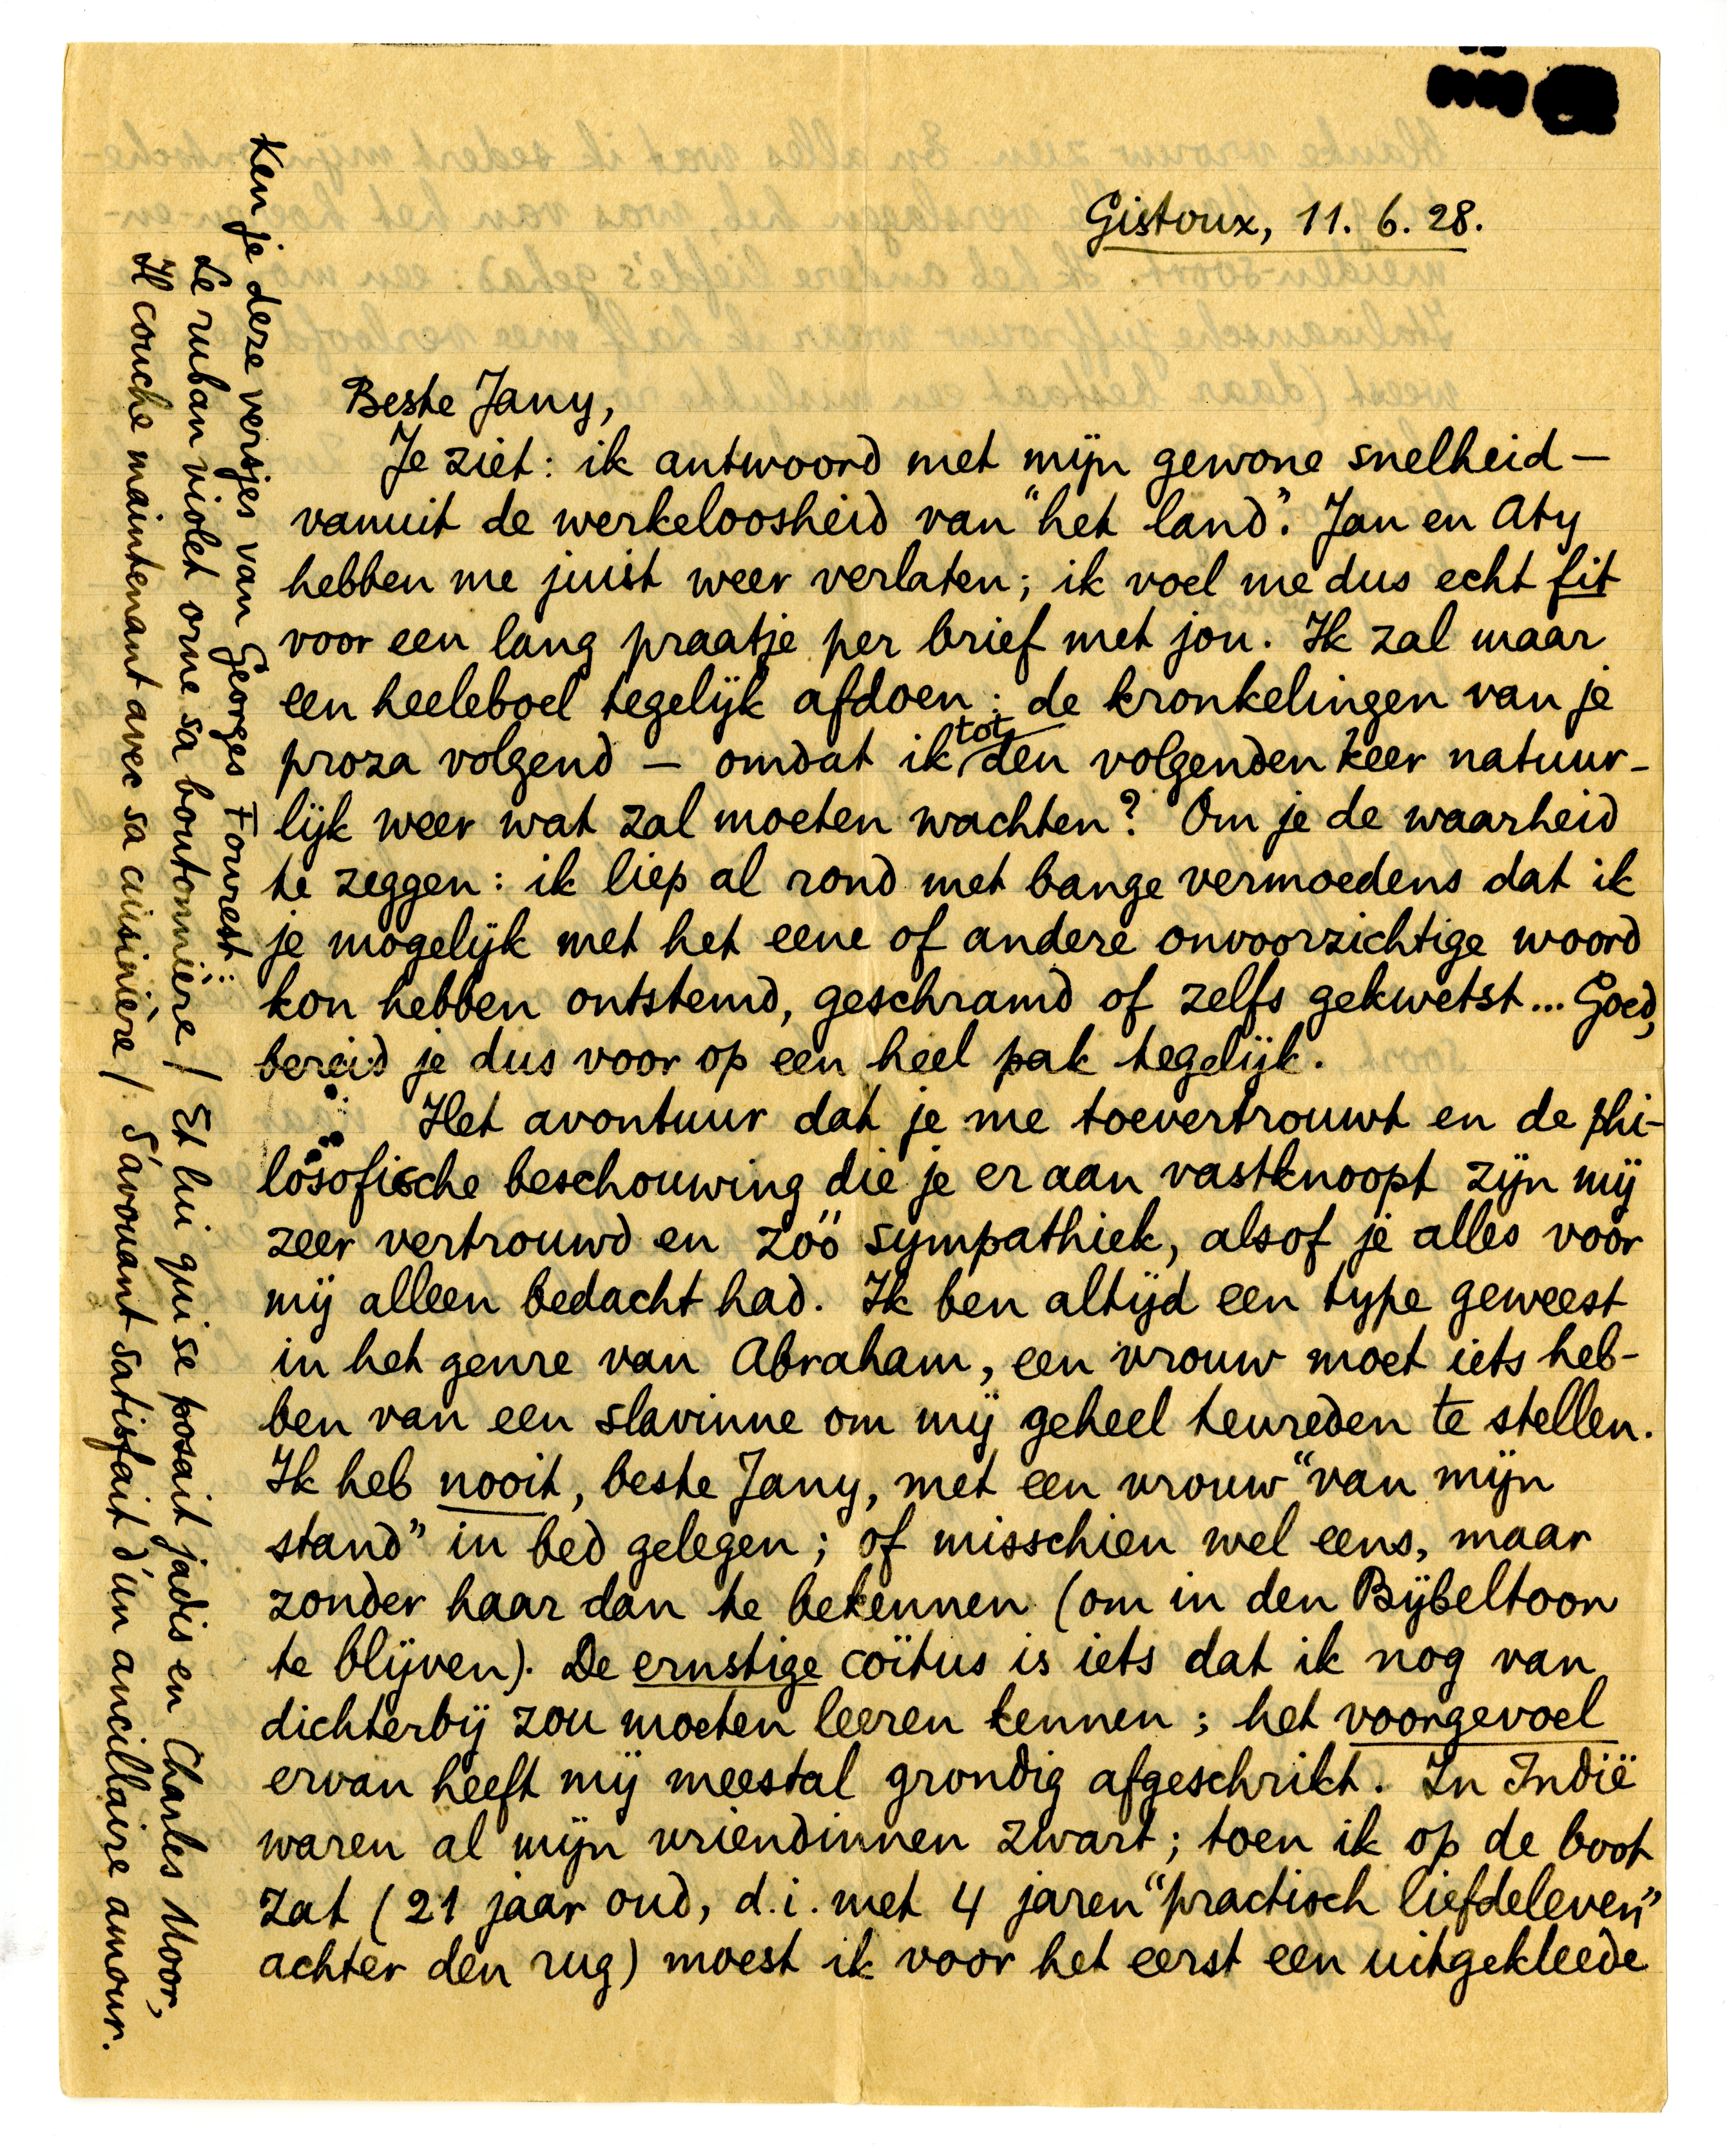 Gistoux, 11. 6. 28.
Beste Jany,
Je ziet: ik antwoord met mijn gewone snelheid —
vanuit de werkeloosheid van "het land". Jan en Aty
hebben me juist weer verlaten; ik voel me dus echt fit
voor een lang praatje per brief met jou. Ik zal maar
een heeleboel tegelijk afdoen: de kronkelingen van je
proza volgend — omdat ik tot den volgenden keer natuur-
lijk weer wat zal moeten wachten? Om je de waarheid
te zeggen: ik liep al rond met bange vermoedens dat ik
je mogelijk met het eene of andere onvoorzichtige woord
kon hebben ontstemd, geschramd of zelfs gekwetst... Goed,
bereid je dus voor op een heel pak tegelijk.
Het avontuur dat je me toevertrouwt en de phi-
losofische beschouwing die je er aan vastknoopt zijn mij
zeer vertrouwd en zóó sympathiek, alsof je alles voor
mij alleen bedacht had. Ik ben altijd een type geweest
in het genre van Abraham, een vrouw moet iets heb-
ben van een slavinne om mij geheel tevreden te stellen.
Ik heb nooit, beste Jany, met een vrouw "van mijn
stand" in bed gelegen; of misschien wel eens, maar
zonder haar dan te bekennen (om in den Bijbeltoon
te blijven). De ernstige coïtus is iets dat ik nog van
dichterbij zou moeten leeren kennen; het voorgevoel
ervan heeft mij meestal grondig afgeschrikt. In Indië
waren al mijn vriendinnen zwart; toen ik op de boot
zat (21 jaar oud, d.i. met 4 jaren "practisch liefdeleven"
achter den rug) moest ik voor het eerst een uitgekleede
Ken je deze versjes van Georges Fourest:
Le ruban violet orne sa boutonnière / Et lui qui se posait jadis en Charles Moor,
Il couche maintenant avec sa cuisinière / S'avouant satisfait d'un ancillaire amour.